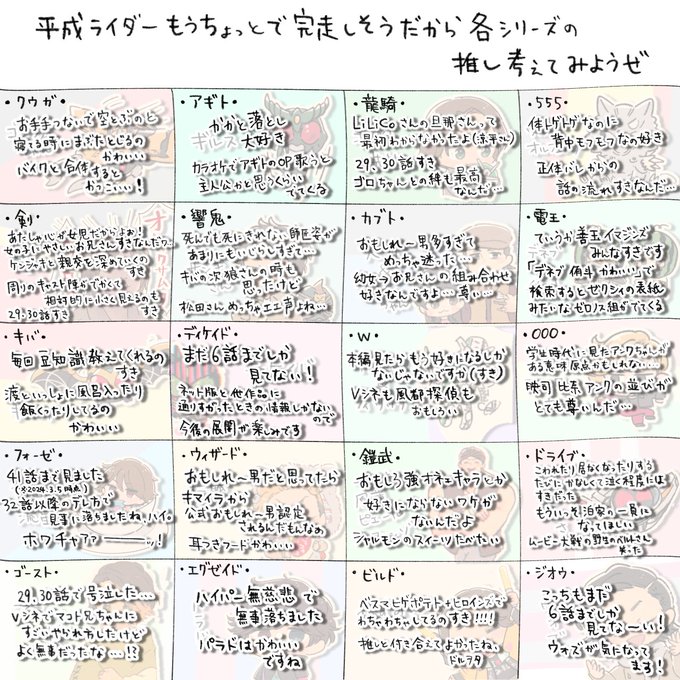 平成ライダーもうちょっとで完走しそうだから各シリーズの
推し考えてみようぜ
・クウガ・
お手手つないで空とぶのと
寝る時にまぶたとじるの
かわいい
バイクと合体すると
かっこいい!
・アギト・
かかと落とし
大好き
カラオケでアギトのOP歌うと
主人公かと思うくらい
でてくる
・龍騎・
LiLiCoさんの旦那さんって
最初わからなかったよ(涼平さん)
29.30話すき
ゴロちゃんとの絆も最高
なんだ…
・555・
体トゲトゲなのに
背中モフモフなの好き
正体バレからの
話の流れすきなんだ…
・剣・
あたしゃ心が女児だからよぉ!
女の子にやさしいお兄さんすきなんだワ…
ケンジャキと親交を深めていくの
すき
周りのキャスト陣がでかくて
相対的に小さく見えるのも
すき
29.30話すき
・響鬼・
死んでも死にきれない師匠姿が
あまりにもいじらしすぎて…
キバの次狼さんの時も
思ったけど
松田さんめっちゃエエ声よね…
・カブト・
おもしれ〜男多すぎて
めっちゃ迷った…
幼女→お兄さんの組み合わせ
好きなんですよ…尊い…
・電王・
ていうか善玉イマジンズ
みんなすきです
「デネブ 侑斗 かわいい」で
検索するとゼクシィの表紙
みたいなゼロノス組がでてくる
・キバ・
毎回豆知識教えてくれるの
すき
渡といっしょに風呂入ったり
飯くったりしてるの
かわいい
・ディケイド・
まだ6話までしか
見てない!
ネット版と他作品に
通りすがったときの情報しかないので
今後の展開が楽しみです
・W・
本編見たらもう好きになるしか
ないじゃないですか(すき)
Vシネも風都探偵も
おもしろい
・OOO・
学生時代に見たアンクちゃんが
ある意味原点かもしれない…
映司 比奈 アンクの並びが
とても尊いんだ…
・フォーゼ・
41話まで見ました
(※2024.3.5時点)
32話以降のテレ方で
見事に落ちましたね、ハイ。
ホワチャアァーーーッ!
・ウィザード・
おもしれ〜男だと思ってたら
キマイラから
公式おもしれ〜男認定
されるんだもんなぁ
耳つきフードかわいい
・鎧武・
おもしろ強オネェキャラとか
好きにならないワケが
ないんだよ
シャルモンのスイーツたべたい
・ドライブ・
こわれたり居なくなったりする
たびにかなしくて泣く程度には
すきだった
もういっそ泊家の一員に
なってほしい
ムービー大戦の野生のベルトさん
笑った
・ゴースト・
29.30話で号泣した…
Vシネでマコト兄ちゃんに
すごいやられ方したけど
よく無事だったな…!?
・エグゼイド・
ハイパー無慈悲で
無事落ちました
パラドはかわいい
ですね
・ビルド・
ベスマヒゲポテト+ヒロインズで
わちゃわちゃしてるのすき!!!!
推しと付き合えてよかったね、
ドルヲタ
・ジオウ・
こっちもまだ
6話までしか
見てな〜い!
ウォズが気になって
ます!